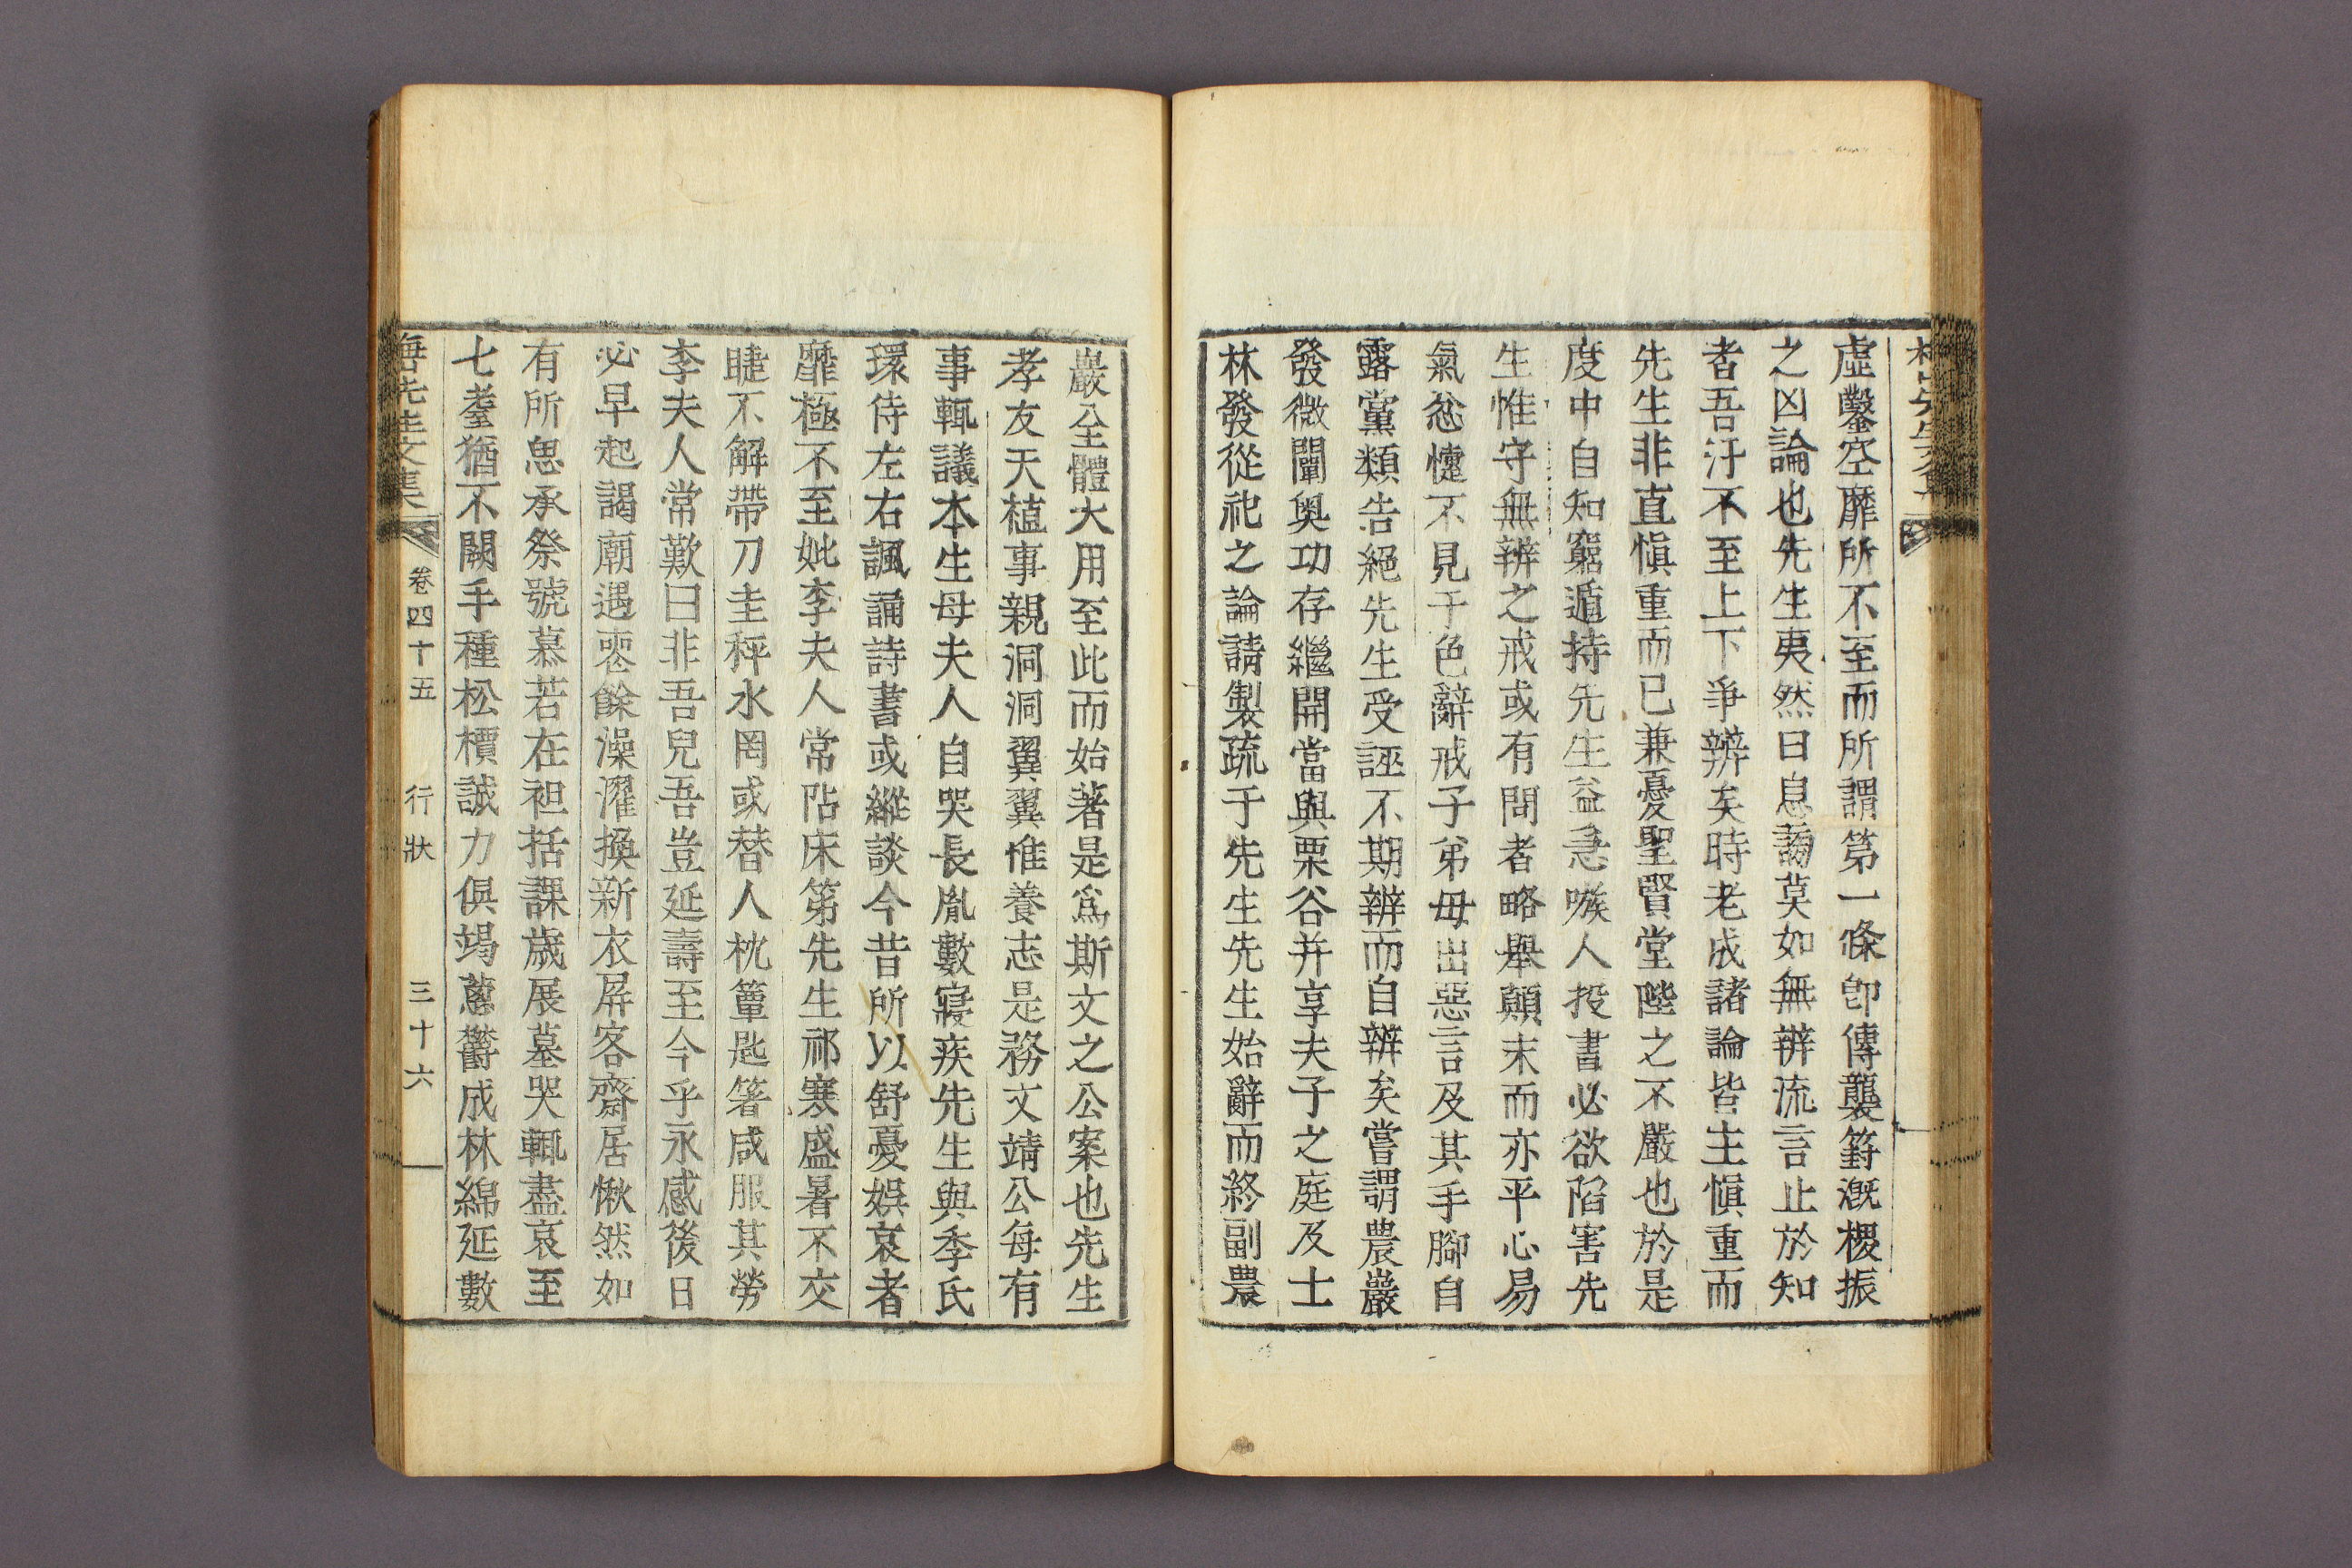 虛鑿空靡所不至而所謂第一條卽傳襲篈漑櫻振
之凶論也先生夷然曰息謗莫如無辨流言止於知
者吾汙不至上下爭辨矣時老成諸論皆主愼重而
先生非直愼重而已兼憂聖賢堂陛之不嚴也於是
度中自知窮遁持先生益急嗾人投書必欲陷害先
生惟守無辨之戒或有問者略擧顚末而亦平心易
氣忿懥不見于色辭戒子弟毋出惡言及其手腳自
露黨類告絕先生受誣不期辨而自辨矣嘗謂農巖
發微闡奧功存繼開當與栗谷并享夫子之庭及士
林發從祀之論請製疏于先生先生始辭而終副農
巖全體大用至此而始著是爲斯文之公案也先生
孝友天植事親洞洞翼翼惟養志是務文靖公每有
事輒議本生母夫人自哭長胤數寢疾先生與季氏
環侍左右諷誦詩書或縱談今昔所以舒憂娛哀者
靡極不至妣李夫人常阽床第先生祁寒盛暑不交
睫不解帶刀圭秤水罔或替人枕簟匙箸咸服其勞
李夫人常歎曰非吾兒吾豈延壽至今乎永感後日
必早起謁廟遇喪餘澡濯換新衣屛客齋居愀然如
有所思承祭號慕若在袒括課歲展墓哭輒盡哀至
七耋猶不闕手種松檟誠力俱竭蔥鬱成林綿延數
先生文集 卷四十五 行狀 三十六